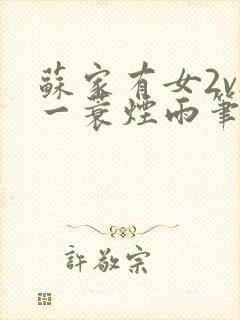 蘇家有女2v
一蓑煙雨筆
許敬宗